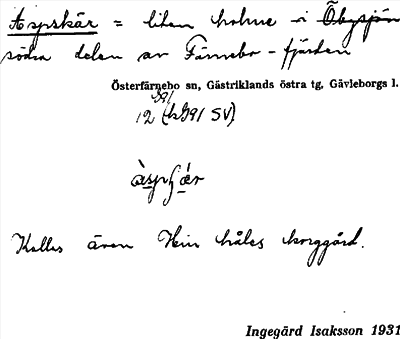 Aspskär = liten holme i Öbysjön
södra delen av Färnebo-fjärden
Österfärnebo sn, Gästriklands östra tg, Gävleborgs l.
I91
12 (hI91 SV)
Kallas även håles borggård.
Ingegärd Isaksson 1931